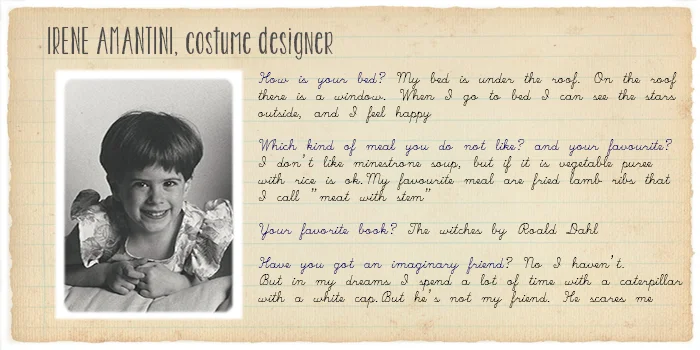 IRENE AMANTINI, costume designer
How is your bed? My bed is under the roof. On the roof
there is a window. When I go to bed I can see the stars
outside, and I feel happy
Which kind of meal you do not like? and your favourite?
I don't like minestrone soup, but if it is vegetable puree
with rice is ok. My favourite meal are fried lamb ribs that
I call "meat with stem"
Your favorite book? The witches by Roald Dahl
Have you got an imaginary friend? No I haven't.
But in my dreams I spend a lot of time with a caterpillar
with a white cap. But he's not my friend. He scares me